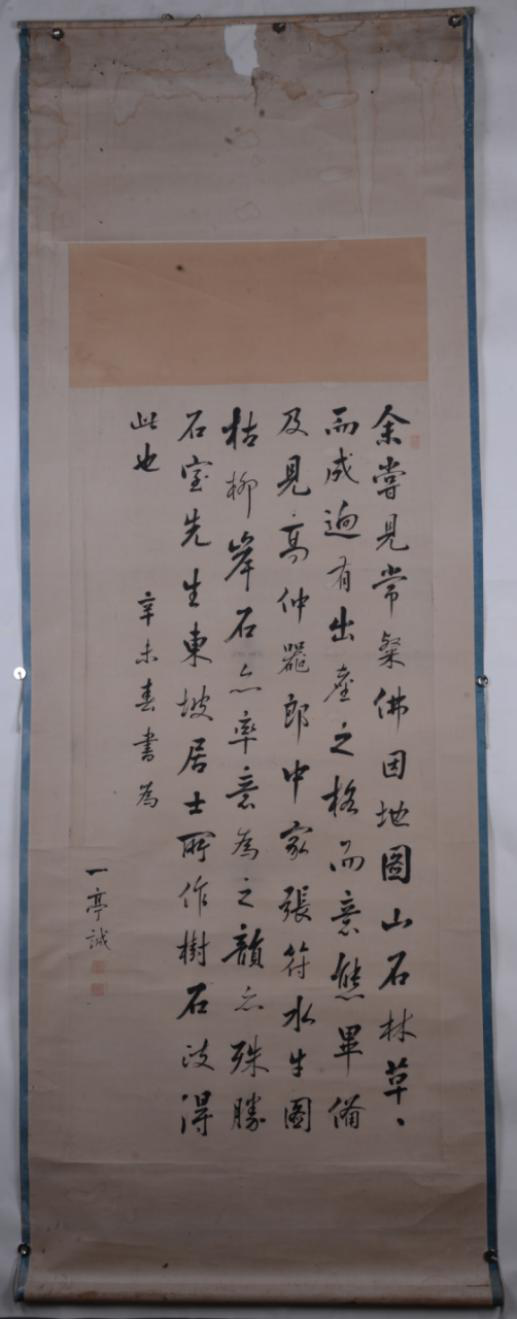 余嘗見常粲佛因地圖山石林草、
而成迥有出塵之格而意態畢備
及見高仲器郎中家張符水牛圖
枯柳岸石亦率意為之韻亦殊勝
石室先生東坡居士所作樹石淂
此也
辛未春書為
一亭誠